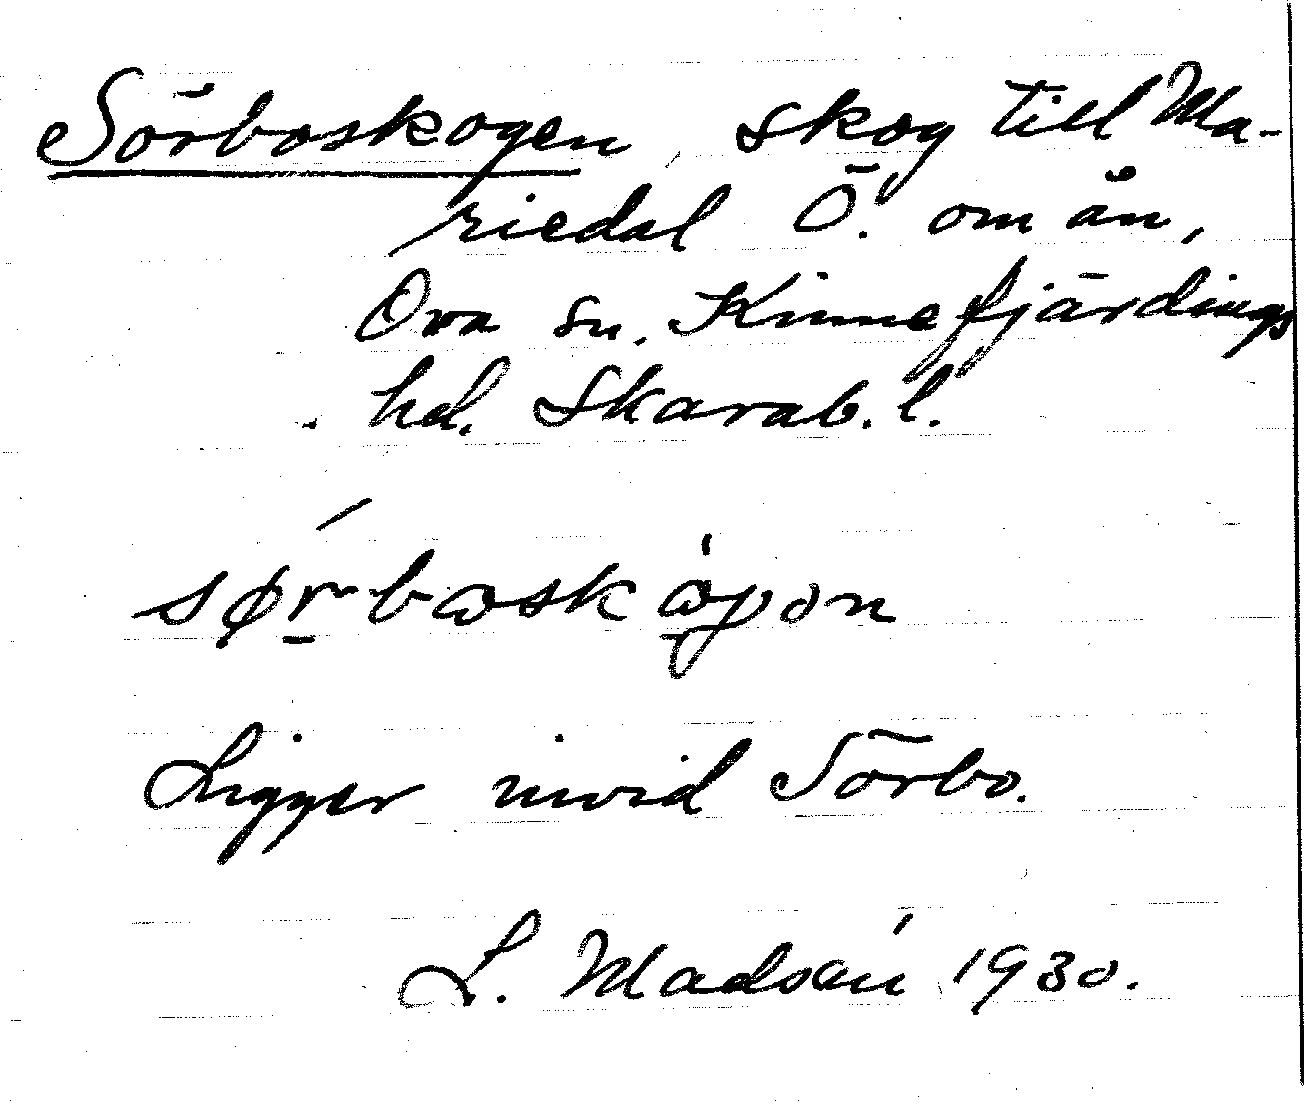 Sörboskogen, skog till Ma-
riedal Ö. om ån,
Ova sn. Kinnefjärdings
hd. Skarab. l.
Ligger invid Sörbo.
L. Madsén 1930.